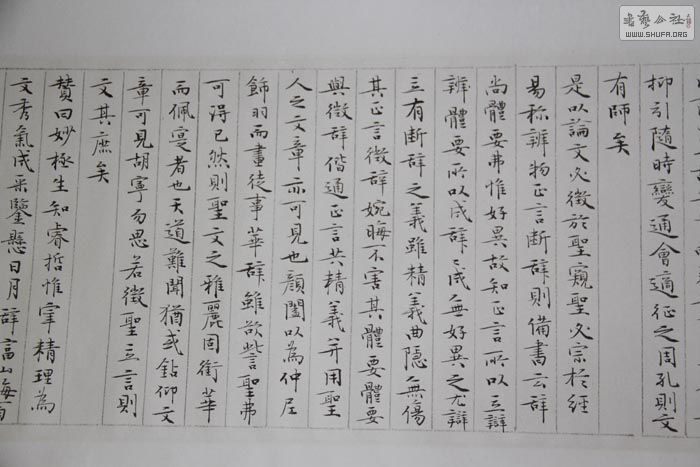 書藝公社
WWW.SHUFA.ORG
抑引隨時變通會適征之周孔則文
有師矣
是以論文必徵於聖窺聖必宗於經
易称辨物正言断辞則備書云辞
尚體要弗惟好異故知正言所以立辯
辨體要所以成辞〻成無好異之尤辯
立有断辞之義雖精義曲隱無傷
其正言徵辞婉晦不害其體要體要
與徵辞偕通正言共精義并用聖
人之文章亦可見也顏闔以為仲尼
飾羽而畫徒事華辞雖欲訾聖弗
可得已然則聖文之雅麗固銜華
而佩實者也天道難聞猶或鉆仰文
章可見胡寧勿思若徵聖立言則
文其庶矣
贊曰妙極生知睿哲惟宰精理為
文秀氣成采鑒懸日月辞富山海百